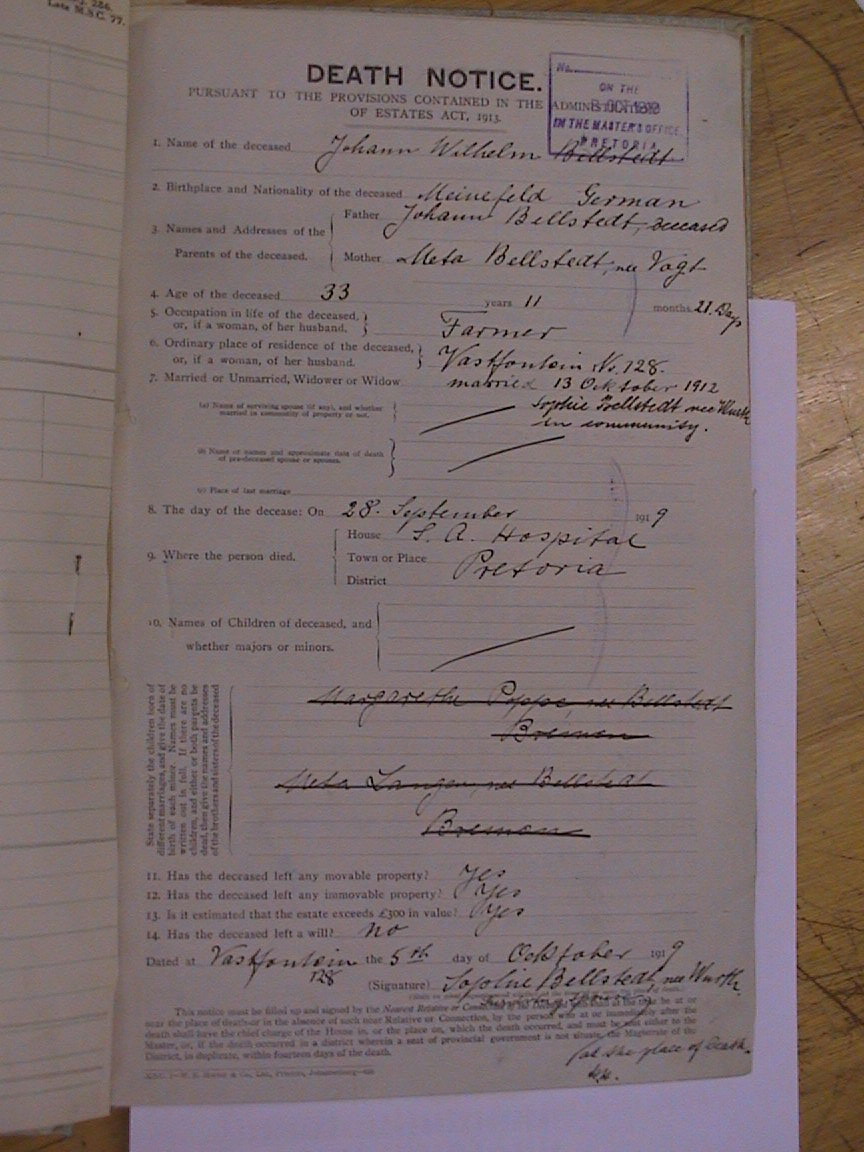 Late M.S.C. 77.
DEATH NOTICE.
PURSUANT TO THE PROVISIONS CONTAINED IN THE ADMINISTRATION
OF ESTATES ACT, 1913.
No.
ON THE
OCT 1919
IN THE MASTER'S OFFICE
PRETORIA
1. Name of the deceased Johann Wilhelm Bellstedt
2. Birthplace and Nationality of the deceased Meinefeld German
3. Names and Addresses of the Parents of the deceased.
Father Johann Bellstedt, deceased
Mother Meta Bellstedt, nee Vogt
4. Age of the deceased 33 years 11 months 21 Days
5. Occupation in life of the deceased, or, if a woman, of her husband. Farmer
6. Ordinary place of residence of the deceased, or, if a woman, of her husband. Vastfontein No. 128.
7. Married or Unmarried, Widower or Widow married 13 Ocktober 1912
(a) Name of surviving spouse (if any), and whether married in community of property or not. Sophie Bellstedt nee Wurth
in community.
(b) Name or names and approximate date of death of pre-deceased spouse or spouses.
(c) Place of last marriage
8. The day of the decease: On 28. September 1919
9. Where the person died.
House S. A. Hospital
Town or Place Pretoria
District
10. Names of Children of deceased, and
whether majors or minors.
State separately the children born of
different marriages, and give the date of
birth of each minor. Names must be
written out in full. If there are no
children, and either or both parents be
dead, then give the names and addresses
of the brothers and sisters of the deceased
Margarethe Poppe, nee Bellstedt
Bremen
Meta Langen, nee Bellstedt
Bremen
11. Has the deceased left any movable property? Yes
12. Has the deceased left any immovable property? Yes
13. Is it estimated that the estate exceeds £300 in value? Yes
14. Has the deceased left a will? no
Dated at Vastfontein 128 the 5th day of Ocktober 1919
(Signature) Sophie Bellstedt, nee Wurth.
Surviving Spouse
This notice must be filled up and signed by the Nearest Relative or Connection of the deceased who is at or
near the place of death, or in the absence of such near Relative or Connection, by the person who at or immediately after the
death shall have the chief charge of the House in, or the place on, which the death occurred, and must be sent either to the
Master, or, if the death occurred in a district wherein a seat of provincial government is not situate, the Magistrate of the
District, in duplicate, within fourteen days of the death.
at the place of death.